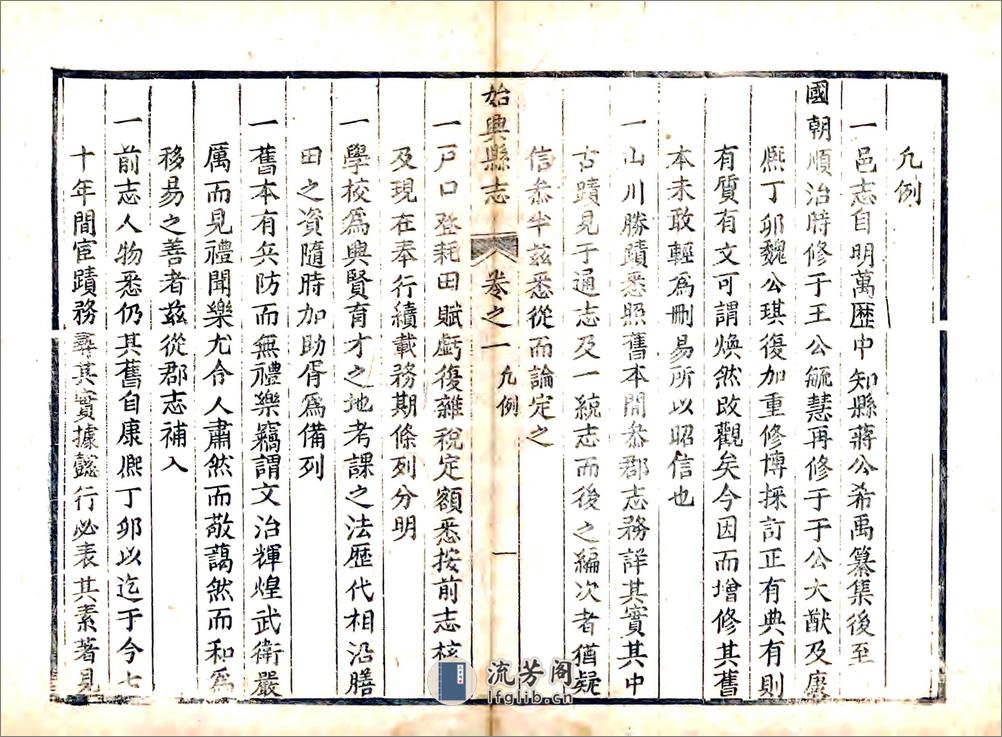 凡例
一邑志自明萬歷中知縣蔣公希禹纂集後至
國朝順治時修于王公毓慧再修于于公大猷及康
熈丁卯魏公琪復加重修博採訂正有典有則
有質有文可謂煥然改觀矣今因而增修其舊
本未敢輕為刪易所以昭信也
一山川勝蹟悉照舊本間叅郡志務詳其實其中
古蹟見于通志及一統志而後之編次者猶疑
信叅半茲悉從而論定之
始興縣志
卷之一
凡例
一
一戸口登耗田賦虧復雜稅定額悉按前志核
及現在奉行續載務期條列分明
一學校為興賢育才之地考課之法歷代相沿膳
田之資隨時加助胥為備列
一舊本有兵防而無禮樂竊謂文治輝煌武衛嚴
厲而見禮聞樂尤令人肅然而敬藹然而和為
移易之善者茲從郡志補入
一前志人物悉仍其舊自康熈丁卯以迄于今七
十年間宦蹟務尋其實據懿行必表其素著見
流芳阁
lfglib.cn